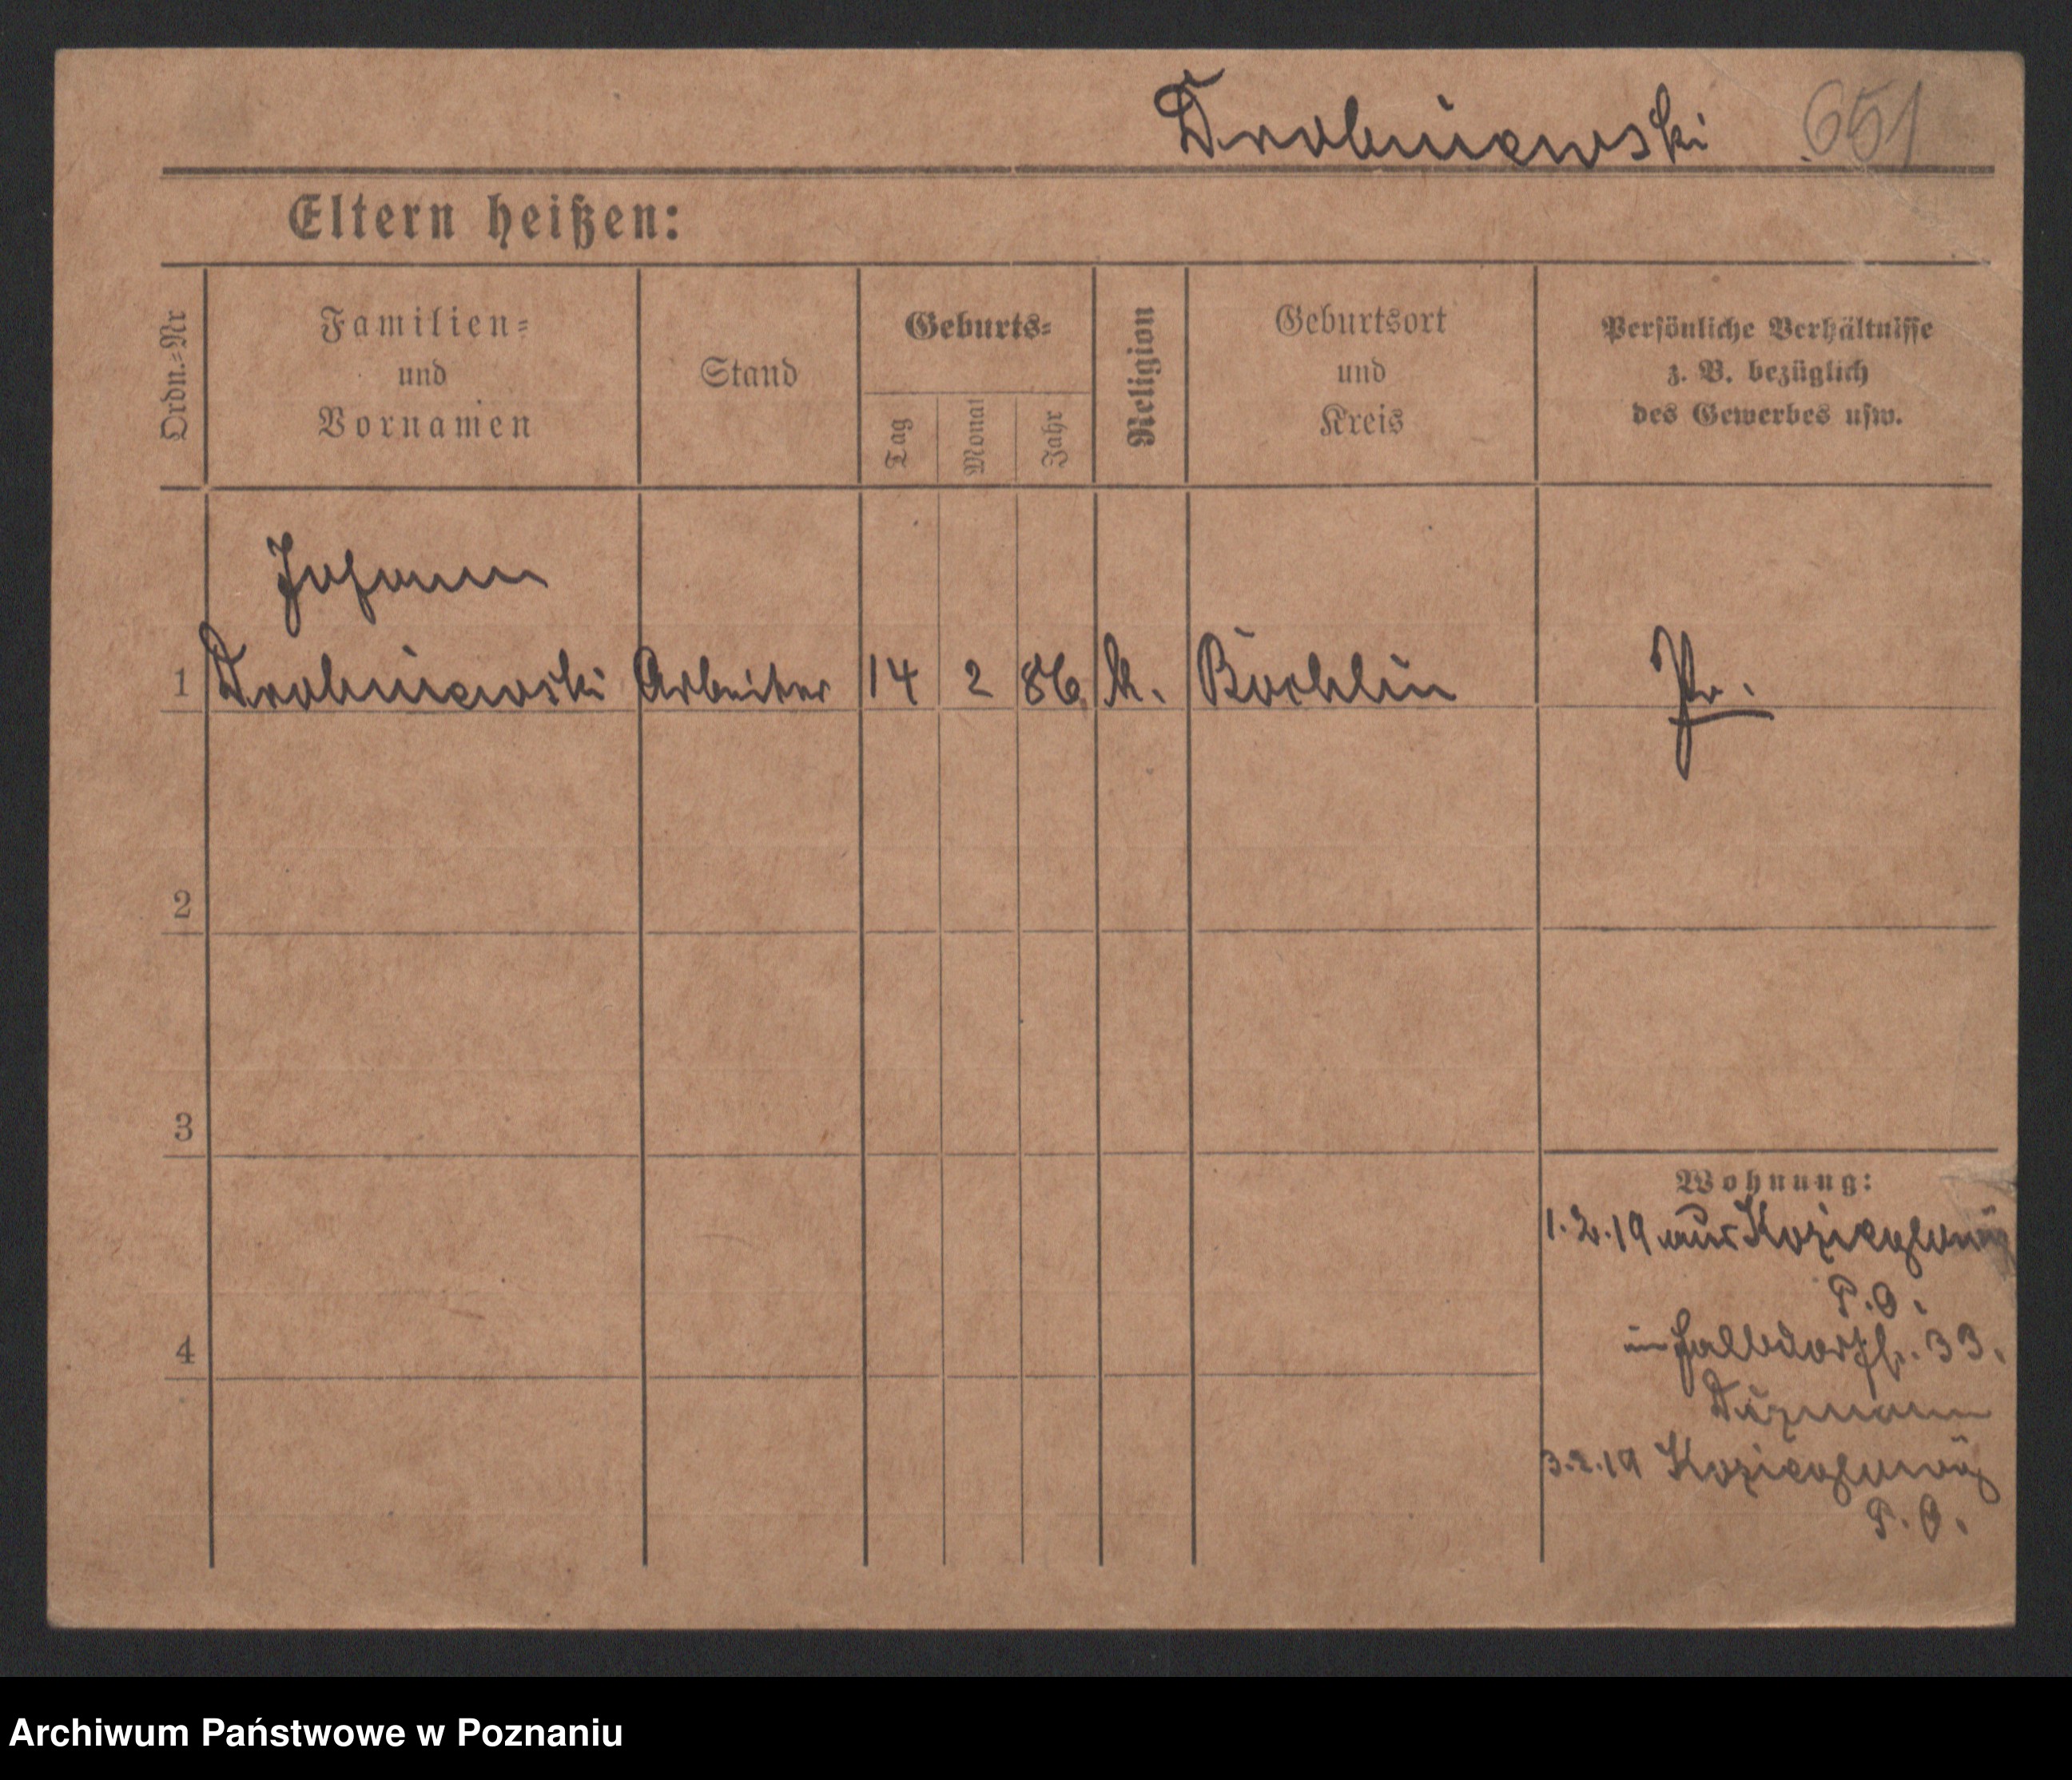 Drobniewski 651
Eltern heißen:
Ordn.-Nr
Familien-
und
Vornamen
Stand
Geburts-
Tag
Monat
Jahr
Religion
Geburtsort
und
Kreis
Persönliche Verhältnisse
z. B. bezüglich
des Gewerbes usw.
Johann
1 Drobniewski Arbeiter 14 2 86 k. Pr.
2
3
Wohnung:
1.2.19 aus Koziegłowy
P.O.
in Halbdorfstr. 33.
4
3.2.19 Koziegłowy
P.O.
Archiwum Państwowe w Poznaniu